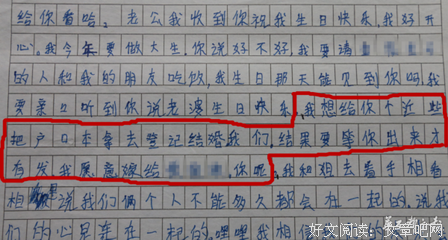 给你看哈，老公我收到你祝我生日快乐，我好开
心。我今年要做大生，你说好不好我要请
的人和我的朋友吃饭，我生日那天能见到你吗我
要亲口听到你说老婆生日快乐，我想给你不近些
把户口本拿去登记结婚我们，结果要等你出来才
有发，我愿意嫁给 你呢，我和难去看手相看
相 说我们俩个人不能够久都会在一起的，说我
们 心早在一起的，嘿嘿我相信
好文阅读：文章吧网